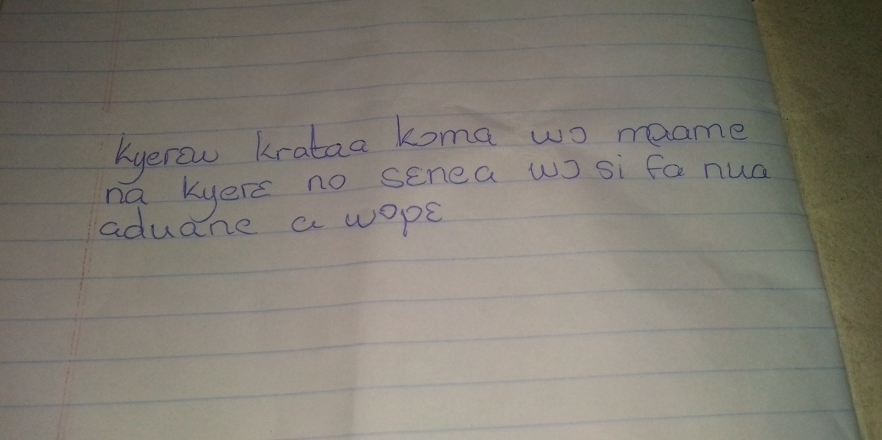 Kyerɛw krataa kɔma wo maame
na kyerɛ no sɛnea wɔ si fa nua
aduane a wopɛ